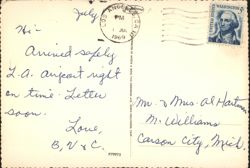 July
Hi -
Arrived safely
L.A. airport right
on time. Letter
soon.
Love,
B, V & C.
LOS ANGELES, CA
PM
1969
WASHINGTON
Mr. & Mrs. Al Hartman
McWilliams
Carson City, Mich